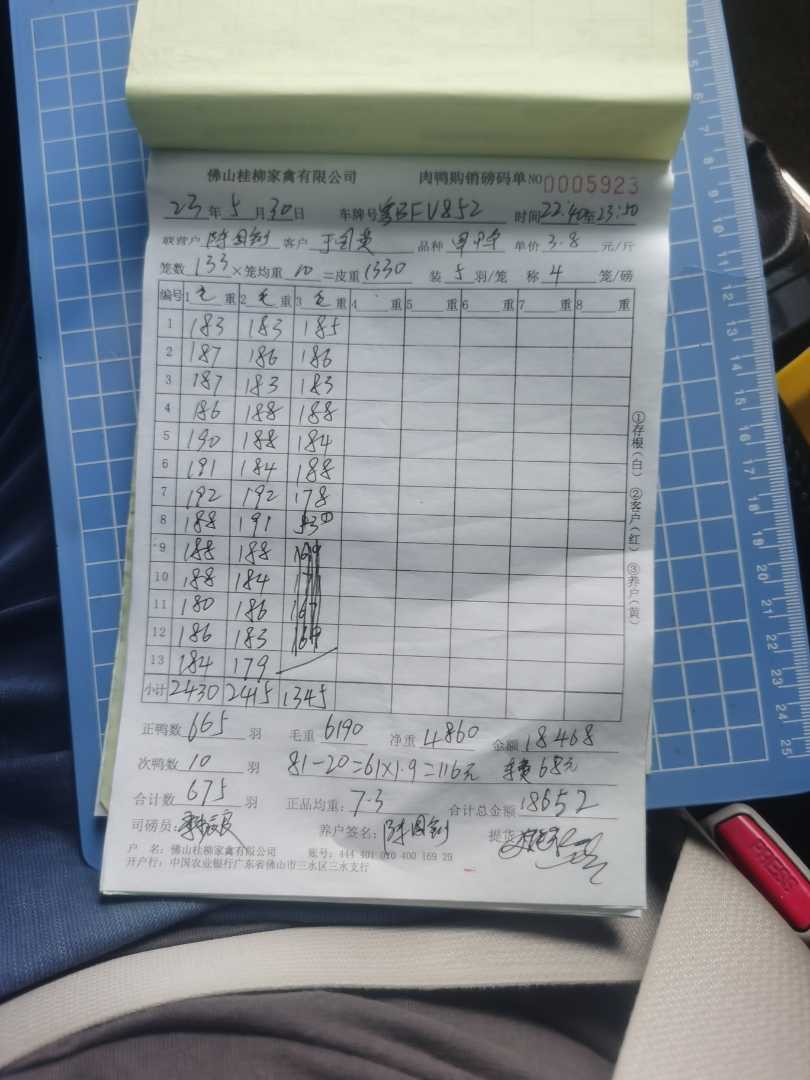 佛山桂柳家禽有限公司 肉鸭购销磅码单 NO 0005923
23年5月30日 车牌号 粤BFV852 时间22:40至23:50
联营户 陈国剑 客户 品种 单价 3.8 元/斤
笼数 133 ×笼均重 10 =皮重 1330 装 5 羽/笼 称 4 笼/磅
编号 1 毛 重 2 毛 重 3 毛 重 4 重 5 重 6 重 7 重 8 重
1 183 183 185
2 187 186 186
3 187 183 183
4 186 188 188
5 190 188 184
6 191 184 188
7 192 192 178
8 188 191 53①
9 188 188 169
10 188 184
11 180 186 167
12 186 183 169
13 184 179
小计 2430 2415 1345
正鸭数 665 羽 毛重 6190 净重 4860 金额 18468
次鸭数 10 羽 81-20=61×1.9=116元 68元
合计数 675 羽 正品均重: 7.3 合计总金额 18652
司磅员: 养户签名: 陈国剑 提货
户 名: 佛山桂柳家禽有限公司 账号: 444 401 010 400 169 29
开户行: 中国农业银行广东省佛山市三水区三水支行
①存根(白) ②客户(红) ③养户(黄)
5 6 7 8 9 10 11 12 13 14 15 16 17 18 19 20 21 22 23 24 25
PRESS